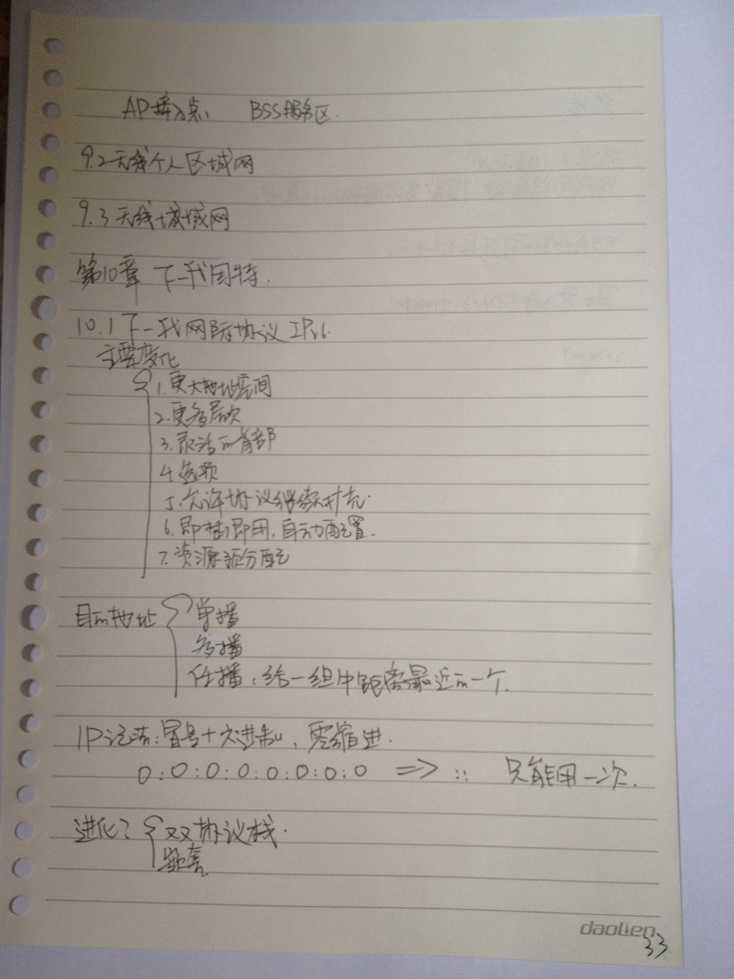 AP接入点    BSS服务区.
9.2无线个人区域网
9.3无线城域网
第10章 下一代因特.
10.1下一代网际协议IPv6.
主要变化
1.更大地址空间
2.更多层次
3.灵活的首部
4.选项
5.允许协议继续扩充.
6.即插即用,自动配置.
7.资源预分配
目的地址 单播
多播
任播:给一组中距离最近的一个.
IP记法:冒号十六进制,零缩进.
0:0:0:0:0:0:0:0 => :: 只能用一次.
进化 双协议栈.
daolien
33